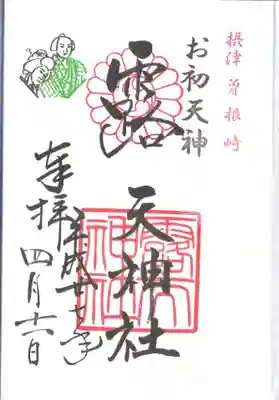 摂津 曽根崎
お初天神
露 天神社
露天神社
平成廿七年
奉拝 四月 日